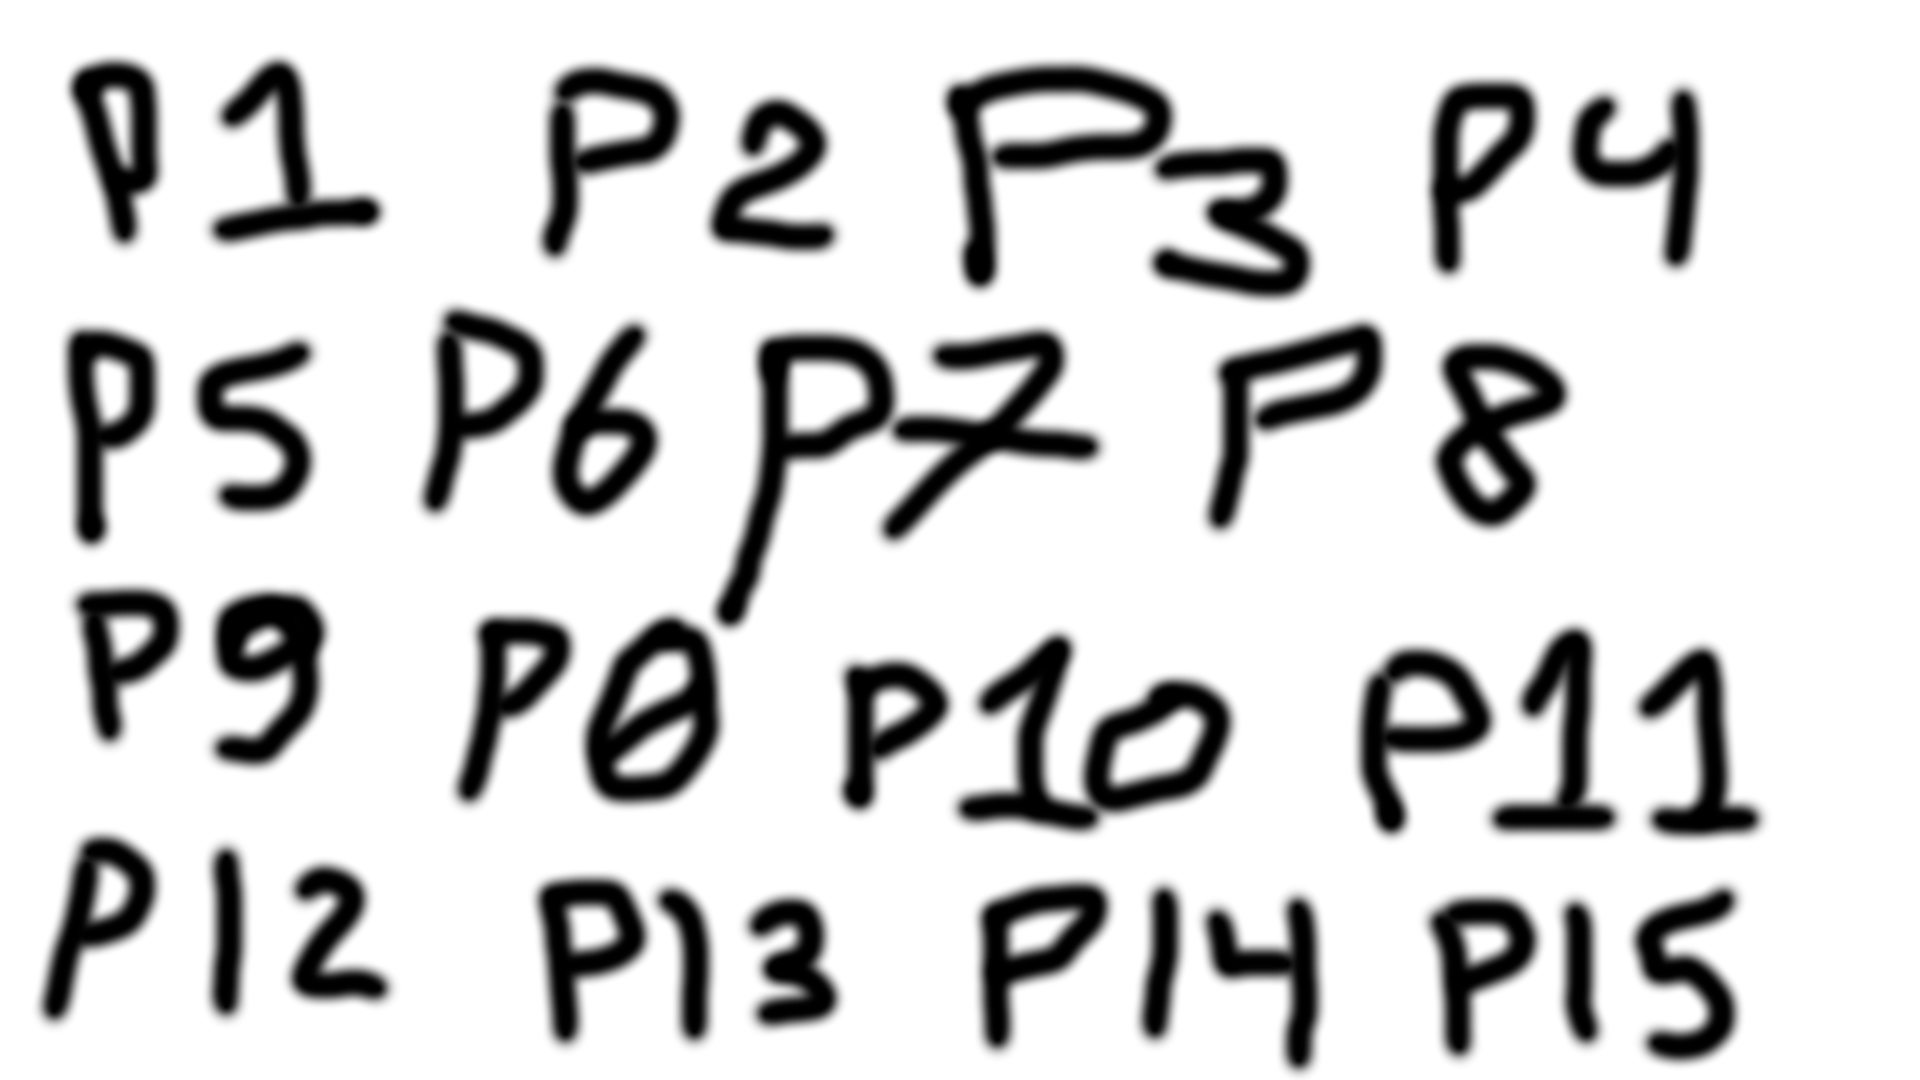 P1 P2 P3 P4
P5 P6 P7 P8
P9 P0 P10 P11
P12 P13 P14 P15